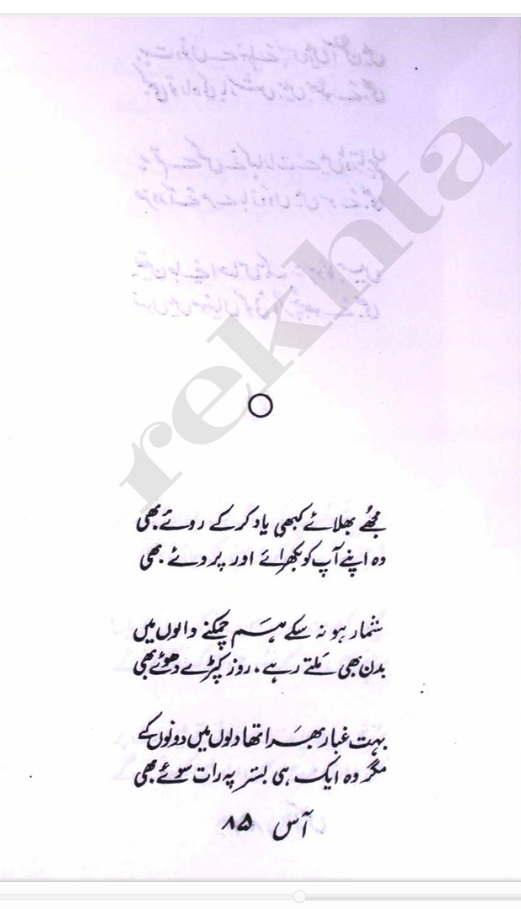 rekhta
مجھے بھلائے کبھی یاد کر کے روئے بھی
وہ اپنے آپ کو بکھرائے اور پروئے بھی
شمار ہو نہ سکے ہم چمکنے والوں میں
بدن بھی ملتے رہے، روز کپڑے دھوئے بھی
بہت غبار بھرا تھا دلوں میں دونوں کے
مگر وہ ایک ہی بستر پہ رات سوئے بھی
آس ۸۵